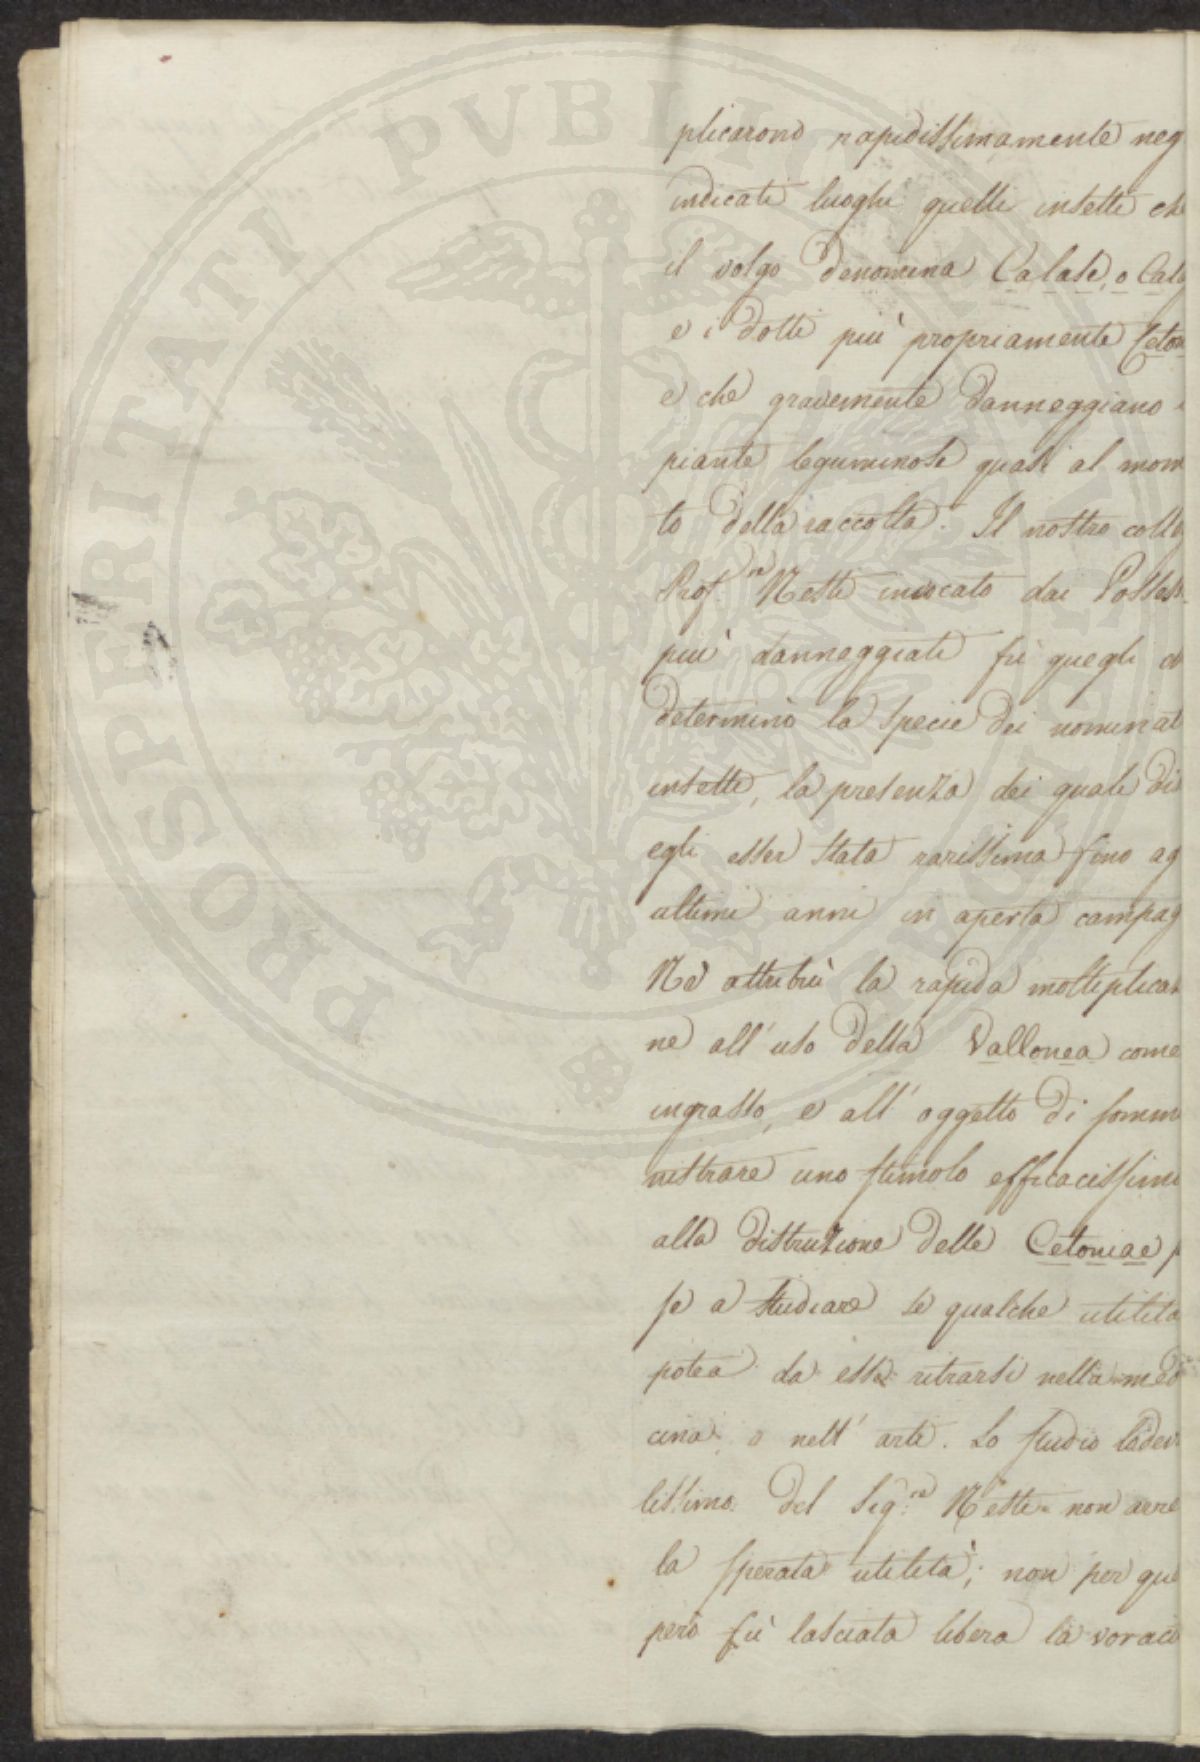 plicarono rapidissimamente neg
indicati luoghi quelli insetti ch
il volgo denomina Calase, o Cal
e i dotti più propriamente Ceton
e che gravemente danneggiano
piante leguminose quasi al mom
to della raccolta. Il nostro colleg
Prof.re Nesti invocato dai Possess
più danneggiati fù quegli ch
determinò la specie dei nominat
insetti, la presenza dei quali di
egli esser stata rarissima fino ag
ultimi anni in aperta campag
Ne attribuì la rapida moltiplica
ne all'uso della Vallonea come
ingrasso, e all'oggetto di sommi
nistrare uno stimolo efficacissimo
alla distruzione delle Cetoniae p
se a studiare se qualche utilità
potea da esse ritrarsi nella med
cina, o nell'arti. Lo studio lodev
lissimo del Sig.re Nesti non arre
la sperata utilità; non per que
però fù lasciata libera la voraci
PROSPERITATI PVBLI